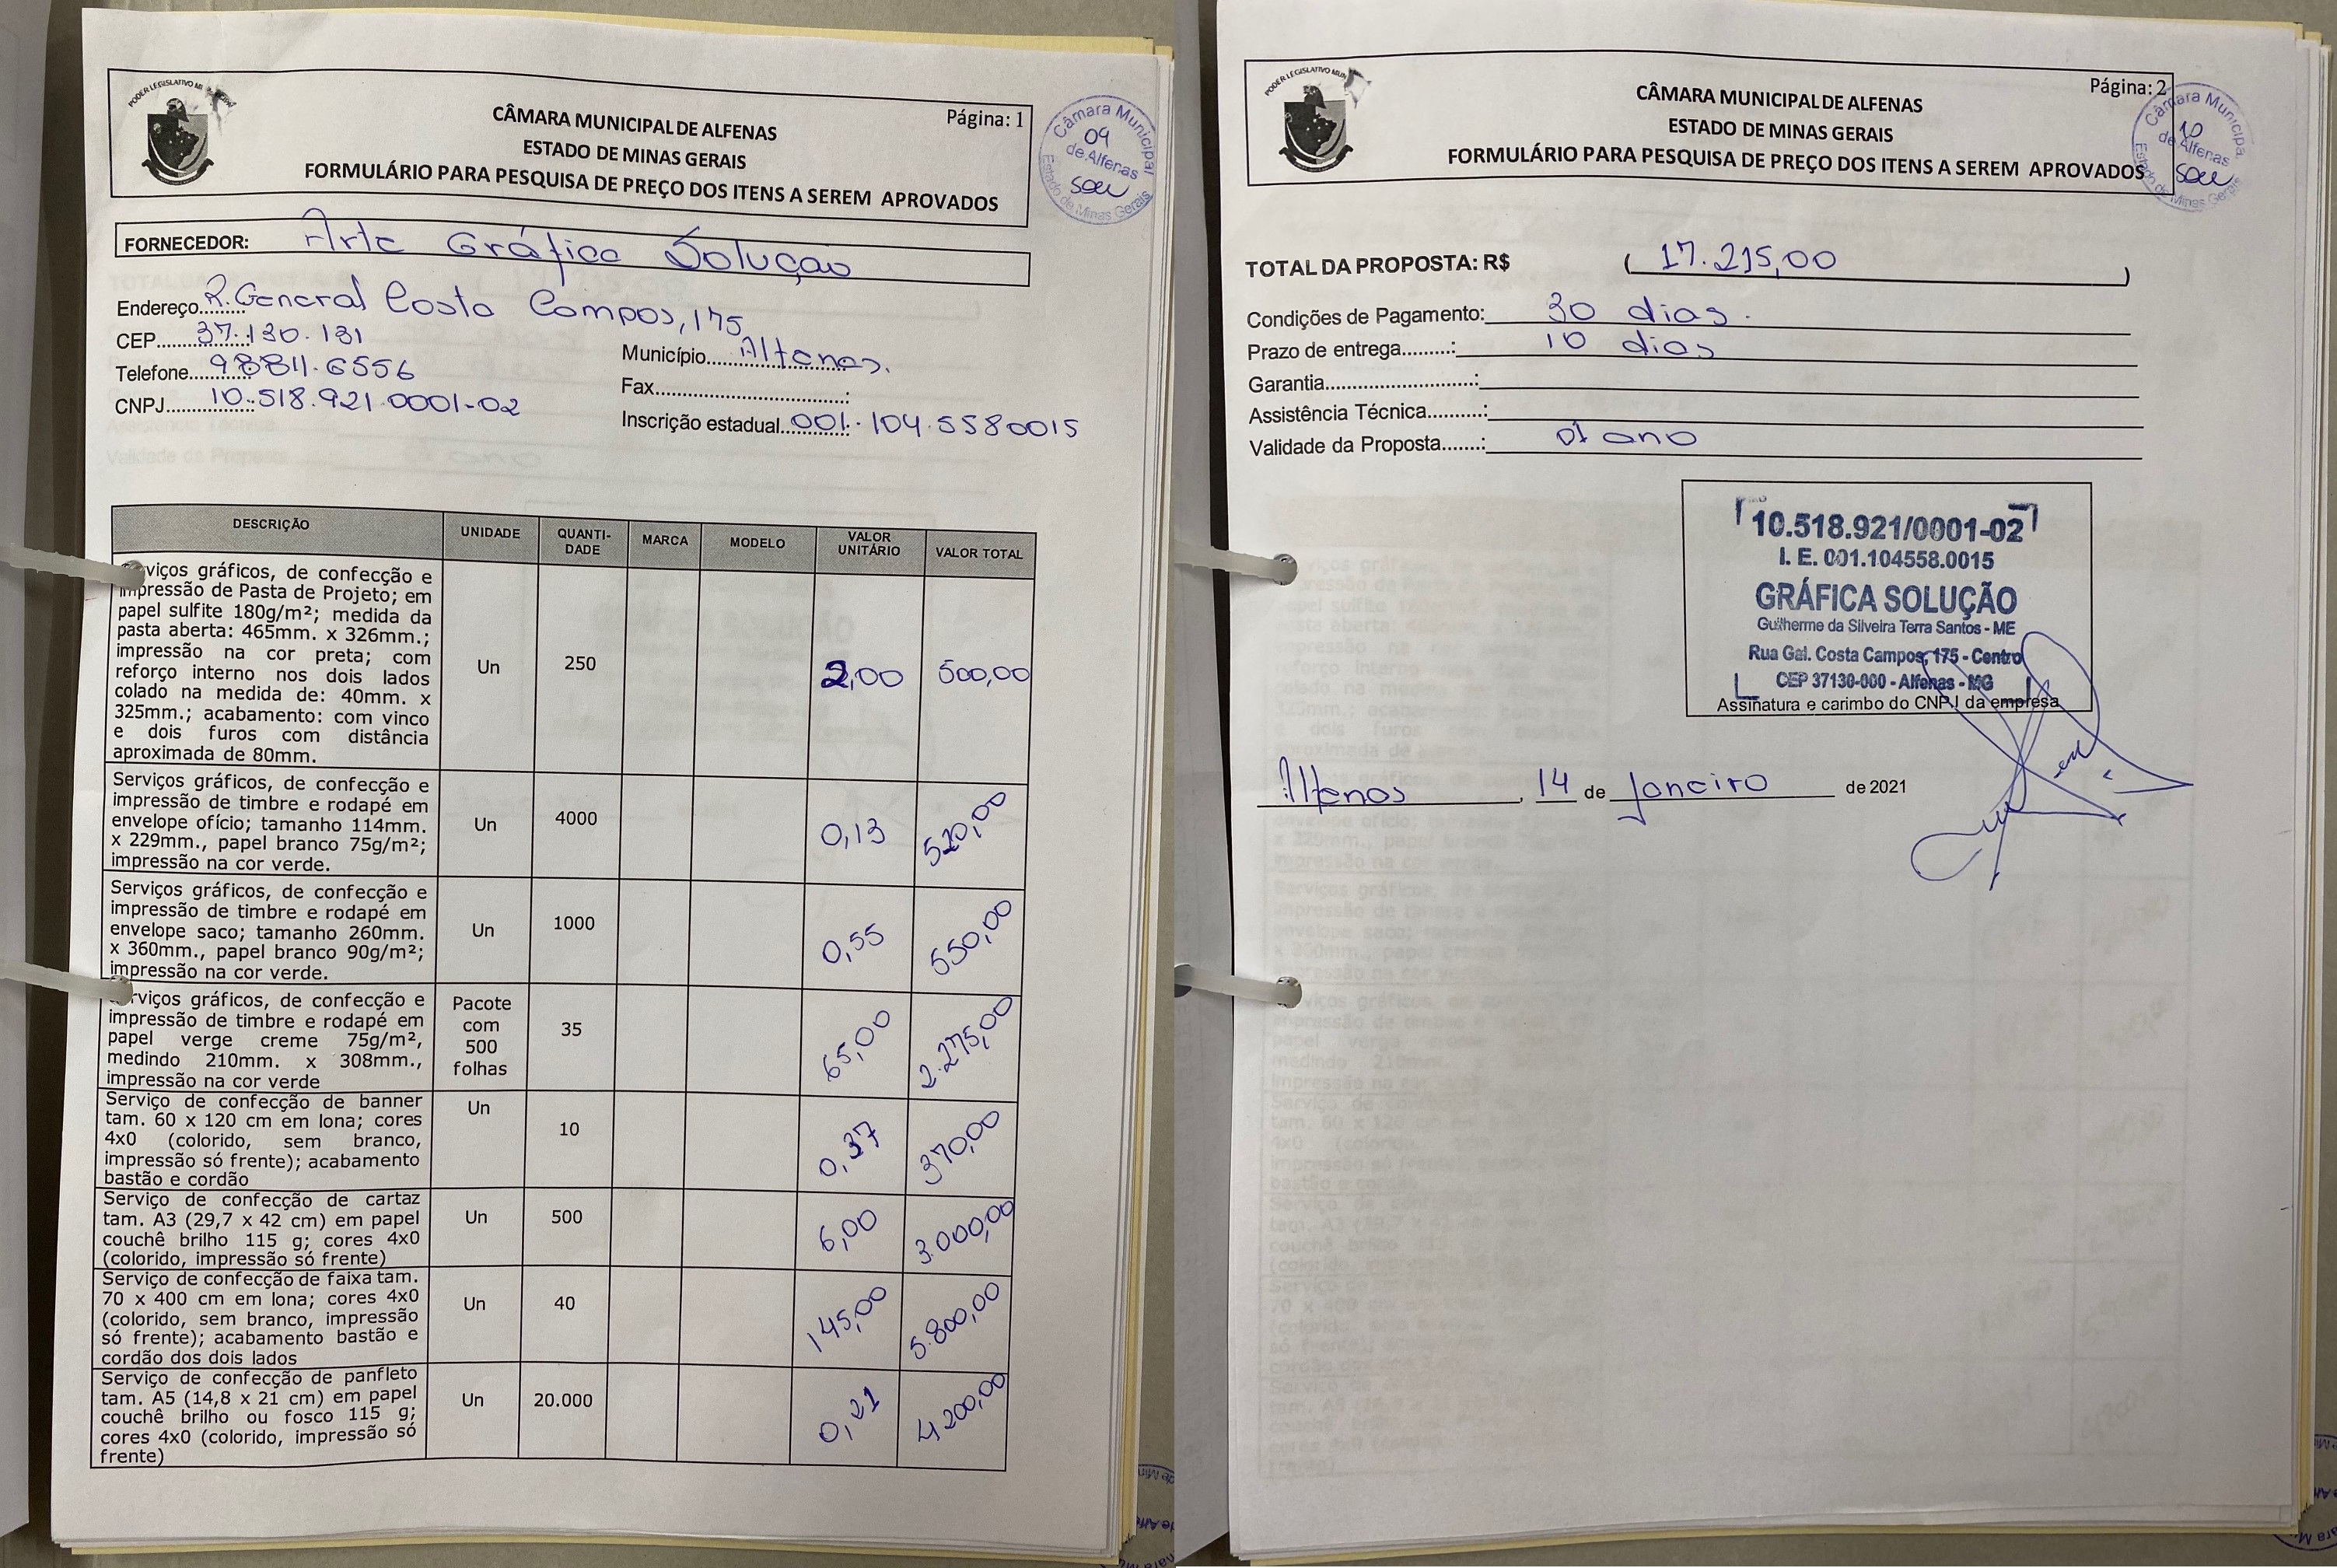 PODER LEGISLATIVO
Página: 1
CÂMARA MUNICIPAL DE ALFENAS
ESTADO DE MINAS GERAIS
FORMULÁRIO PARA PESQUISA DE PREÇO DOS ITENS A SEREM APROVADOS
Câmara Municipal
09
de Alfenas
Estado de Minas Gerais
FORNECEDOR: Arte Gráfica Solução
Endereço........R. General Costa Campos, 175
CEP..............37.130.131
Município......Alfenas.
Telefone.........98811.6556
Fax.................................:
CNPJ.............10.518.921.0001-02
Inscrição estadual..........001.104.5580015
DESCRIÇÃO UNIDADE QUANTI-DADE MARCA MODELO VALOR UNITÁRIO VALOR TOTAL
viços gráficos, de confecção e
impressão de Pasta de Projeto; em
papel sulfite 180g/m²; medida da
pasta aberta: 465mm. x 326mm.;
impressão na cor preta; com
reforço interno nos dois lados
colado na medida de: 40mm. x
325mm.; acabamento: com vinco
e dois furos com distância
aproximada de 80mm.
Un 250 2,00 500,00
Serviços gráficos, de confecção e
impressão de timbre e rodapé em
envelope ofício; tamanho 114mm.
x 229mm., papel branco 75g/m²;
impressão na cor verde.
Un 4000 0,13 520,00
Serviços gráficos, de confecção e
impressão de timbre e rodapé em
envelope saco; tamanho 260mm.
x 360mm., papel branco 90g/m²;
impressão na cor verde.
Un 1000 0,55 550,00
rviços gráficos, de confecção e
impressão de timbre e rodapé em
papel verge creme 75g/m²,
medindo 210mm. x 308mm.,
impressão na cor verde
Pacote
com
500
folhas
35 65,00 2.275,00
Serviço de confecção de banner
tam. 60 x 120 cm em lona; cores
4x0 (colorido, sem branco,
impressão só frente); acabamento
bastão e cordão
Un 10 0,37 370,00
Serviço de confecção de cartaz
tam. A3 (29,7 x 42 cm) em papel
couchê brilho 115 g; cores 4x0
(colorido, impressão só frente)
Un 500 6,00 3.000,00
Serviço de confecção de faixa tam.
70 x 400 cm em lona; cores 4x0
(colorido, sem branco, impressão
só frente); acabamento bastão e
cordão dos dois lados
Un 40 145,00 5.800,00
Serviço de confecção de panfleto
tam. A5 (14,8 x 21 cm) em papel
couchê brilho ou fosco 115 g;
cores 4x0 (colorido, impressão só
frente)
Un 20.000 0,21 4.200,00
PODER LEGISLATIVO
Página: 2
CÂMARA MUNICIPAL DE ALFENAS
ESTADO DE MINAS GERAIS
FORMULÁRIO PARA PESQUISA DE PREÇO DOS ITENS A SEREM APROVADOS
Câmara Municipal
10
de Alfenas
Estado de Minas Gerais
TOTAL DA PROPOSTA: R$ ( 17.215,00 )
Condições de Pagamento: 30 dias.
Prazo de entrega.........: 10 dias
Garantia............................:
Assistência Técnica..........:
Validade da Proposta.......: 01 ano
10.518.921/0001-02
I. E. 001.104558.0015
GRÁFICA SOLUÇÃO
Guilherme da Silveira Terra Santos - ME
Rua Gal. Costa Campos, 175 - Centro
CEP 37130-000 - Alfenas - MG
Assinatura e carimbo do CNPJ da empresa
Alfenas, 14 de Janeiro de 2021